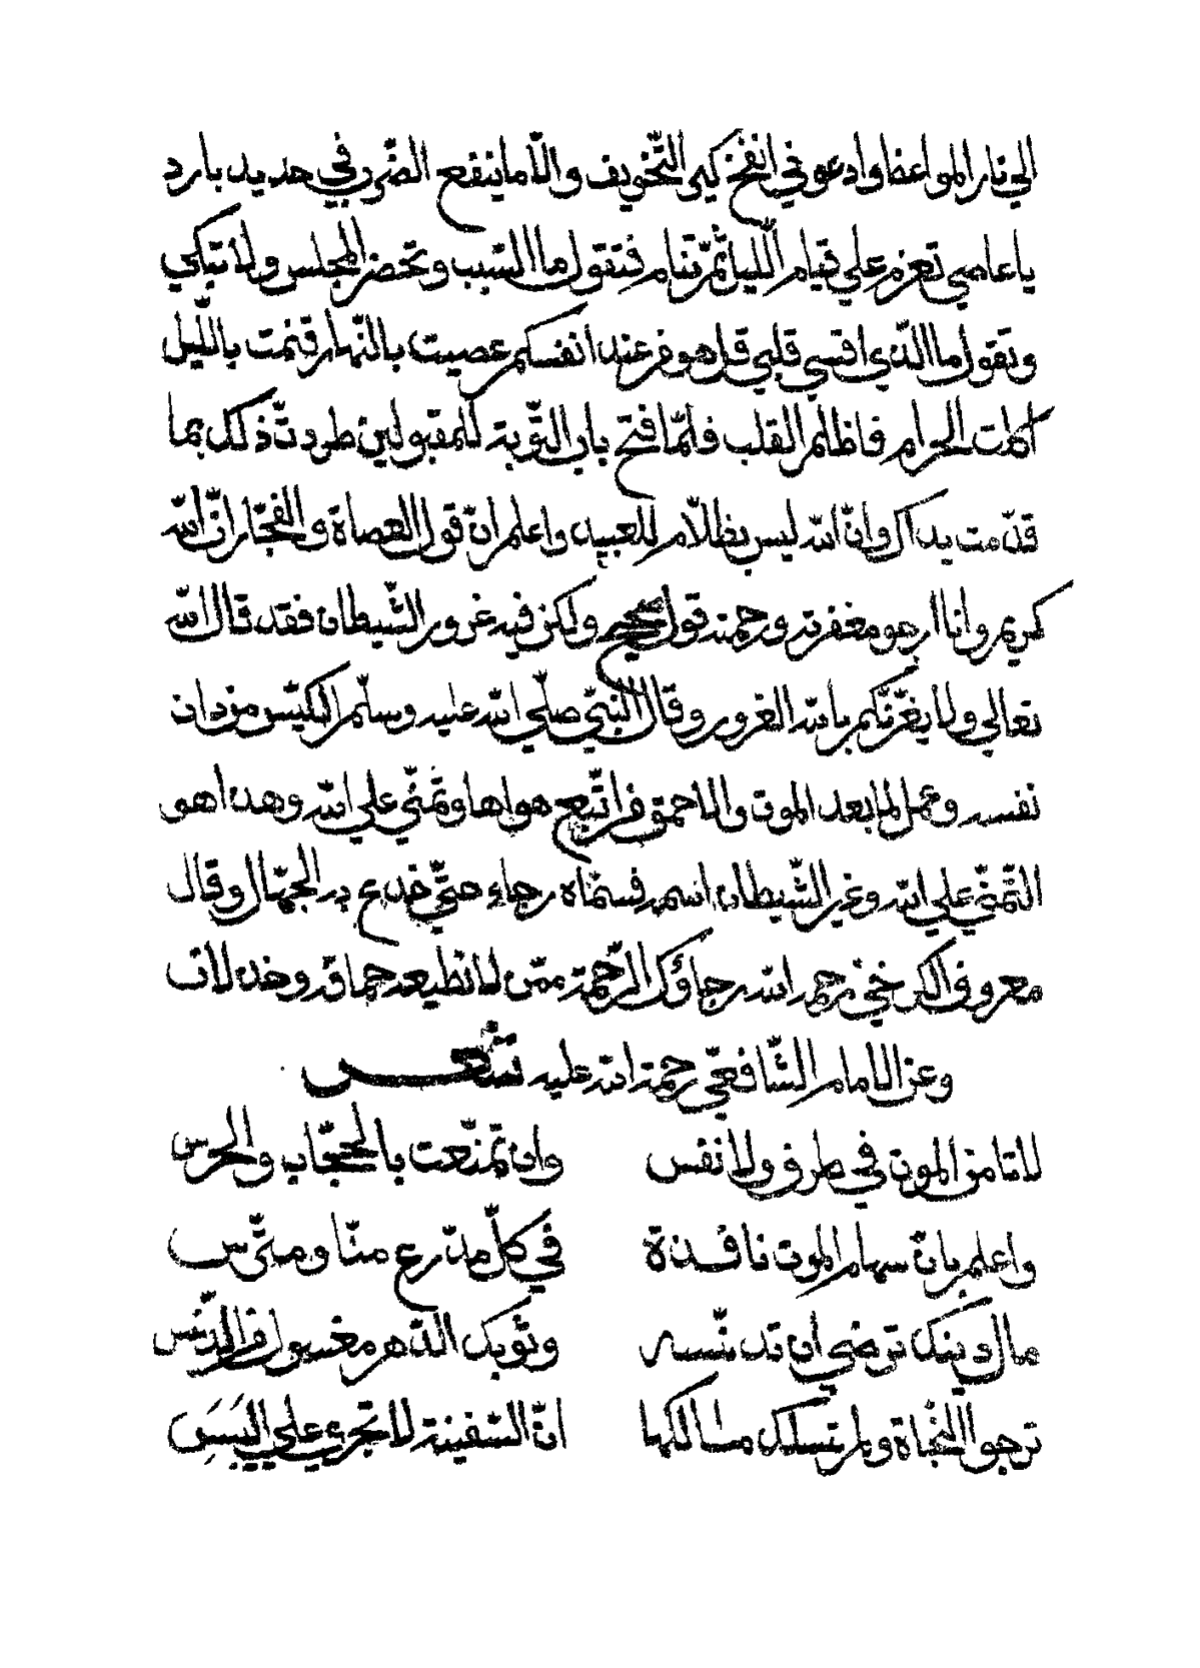 الي نار المواعظ وادعو في انفخ كير التّخويف والّا ما ينفع الضّرب في حديد بارد
يا عاصي تعزم علي قيام اللّيل ثمّ تنام فتقول ما السّبب وتحضر المجلس ولا تبكي
وتقول ما الّذي اقسي قلبي قل هو من عند انفسكم عصيت بالنّهار فنمت باللّيل
اكلت الحرام فاظلم القلب فلمّا فتح باب التّوبة للمقبولين طردت ذلك بما
قدّمت يداك وانّ الله ليس بظلّام للعبيد واعلم انّ قول العصاة والفجّار انّ الله
كريم وانا ارجو مغفرته ورحمته قول صحيح ولكن فيه غرور الشّيطان فقد قال الله
تعالي ولا يغرّنّكم بالله الغرور وقال النّبيّ صلّي الله عليه وسلّم الكيّس من دان
نفسه وعمل لما بعد الموت والاحمق من اتّبع هواها وتمنّي علي الله وهذا هو
التّمنّي علي الله وغير الشّيطان اسمه فسمّاه رجاء حتّي خدع به الجهّال وقال
معروف الكرخي رحمه الله رجاؤك الرّحمة ممّن لا تطيعه حماقة وخذلان
وعن الامام الشّافعيّ رحمة الله عليه شعر
لا تامن الموت في طرف ولا نفس وان تمنّعت بالحجّاب والحرس
واعلم بانّ سهام الموت نافذة في كلّ مدّرع منّا ومتّرس
ما بال دينك ترضي ان تدنّسه وثوبك الدّهر مغسول من الدّنس
ترجوا النّجاة ولم تسلك مسالكها انّ السّفينة لا تجري علي اليبس